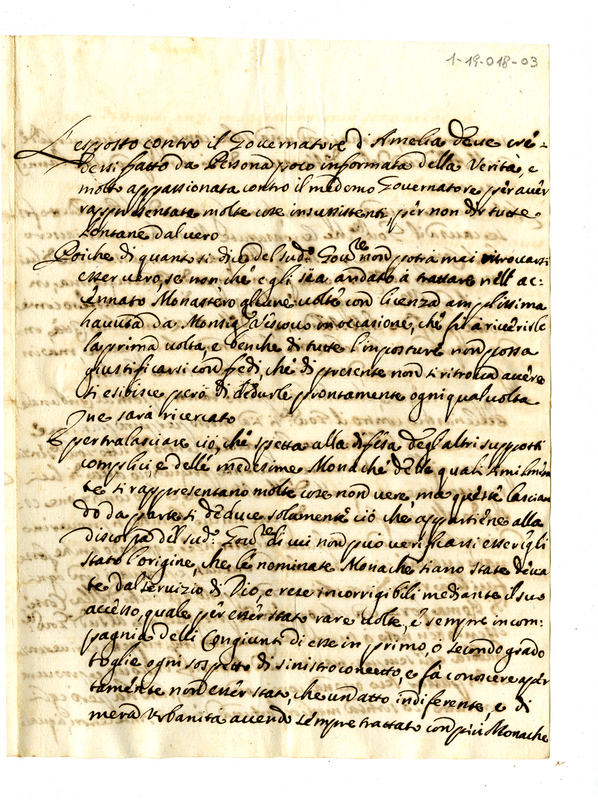 1-19-018-03
L'esposto contro il Governatore d'Amelia deve cre-
dersi fatto da Persona poco informata della Verità, e
molto appassionata contro il medemo Governatore per aver
rappresentate molte cose insussistenti per non dir tutte
lontane dal vero
Poiche di quanto si dice del sud.º Gov.re non potrà mai ritrovarsi
esser vero, se non che egli sia andato à trattare nell'ac-
cennato Monastero alcune volte con licenza amplissima
havuta da Monsig. Vescovo in occasione, che fù à riverirlo
la prima volta, e benche di tutte l'imposture non possa
giustificarsi con fedi, che di presente non si ritrova avere
si esibisce però di dedurle prontamente ogni qual volta
ne sarà ricercato
E per tralasciare ciò, che spetta alla difesa degl'altri supposti
complici, e delle medesime Monache delle quali
te si rappresentano molte cose non vere, ma queste lascian
do da parte si deduce solamente ciò che appartiene alla
discolpa del sud.º Gov.re di cui non può verificarsi esser egli
stato l'origine, che le nominate Monache siano state devia
te dal servizio di Dio, e rese incorrigibili mediante il suo
accesso, quale per esser stato rare volte, e sempre in com:
pagnia delli Congiunti di esse in primo, ò secondo grado
toglie ogni sospetto di sinistro concetto, e fà conoscere aper
tamente non esser stato, che un atto indiferente, e di
mera Urbanità avendo sempre trattato con più Monache